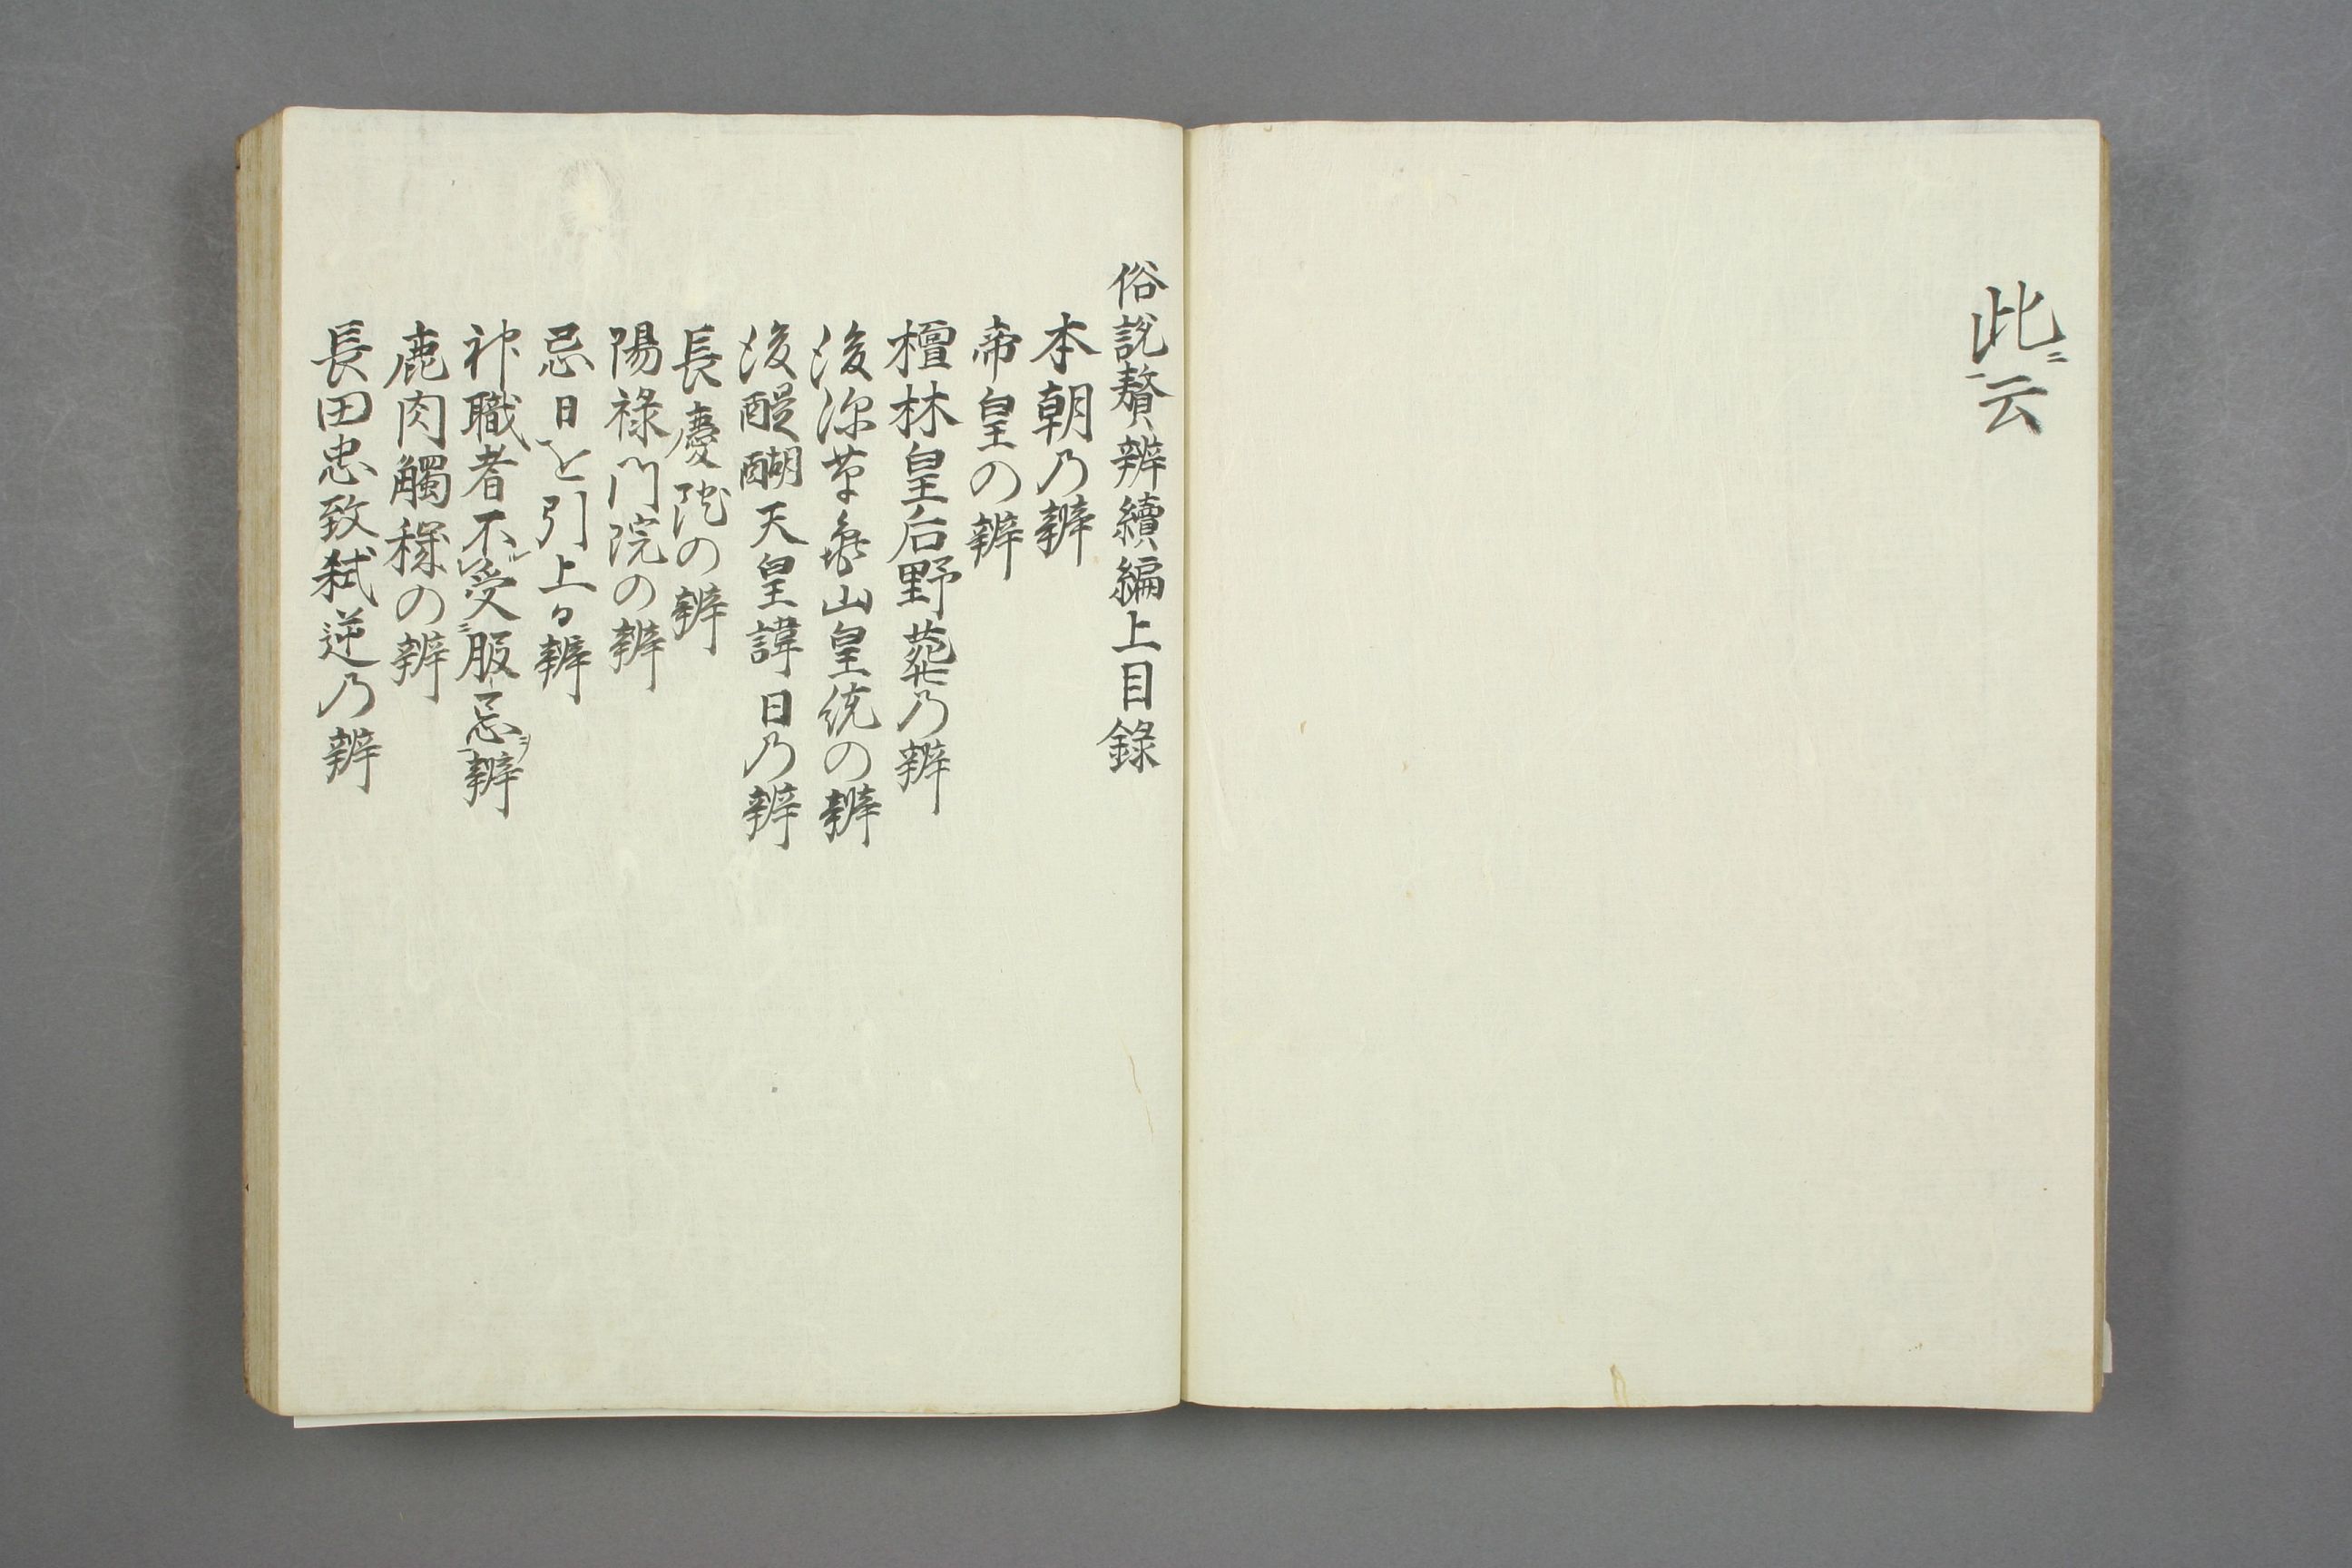 此ニ云
俗説贅辨續編上目錄
本朝乃辨
帝皇の辨
檀林皇后野葬乃辨
後深草龜山皇統の辨
後醍醐天皇諱日乃辨
長慶院の辨
陽祿門院の辨
忌日を引上る辨
神職者不レ受ニ服忌ヲ辨
鹿肉觸穢の辨
長田忠致弑逆乃辨